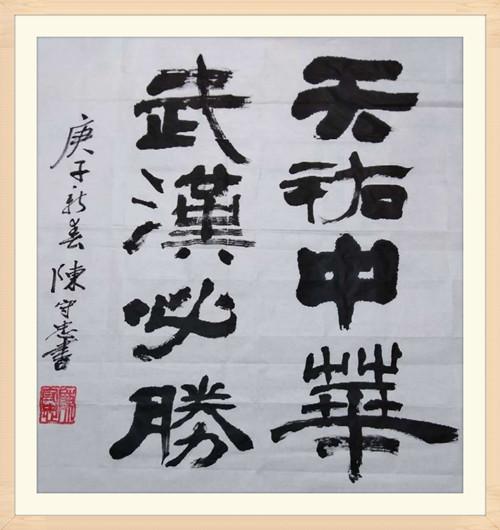 天祐中華
武漢必勝
庚子新春陳守忠書